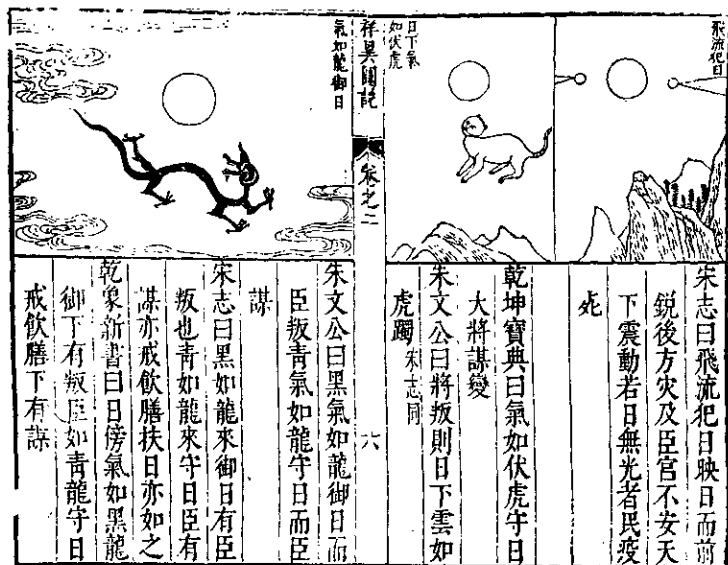 飛流犯日
宋志曰飛流犯日映日而前
銳後方灾及臣官不安天
下震動若日無光者民疫
死
日下氣
如伏虎
乾坤寶典曰氣如伏虎守日
大將謀變
朱文公曰將叛則日下雲如
虎躅 宋志同
祥異圖說
卷之二
六
氣如龍御日
朱文公曰黑氣如龍御日而
臣叛青氣如龍守日而臣
謀
宋志曰黑如龍來御日有臣
叛也青如龍來守日臣有
謀亦戒飲膳扶日亦如之
乾象新書曰日傍氣如黑龍
御下有叛臣如青龍守日
戒飲膳下有謀